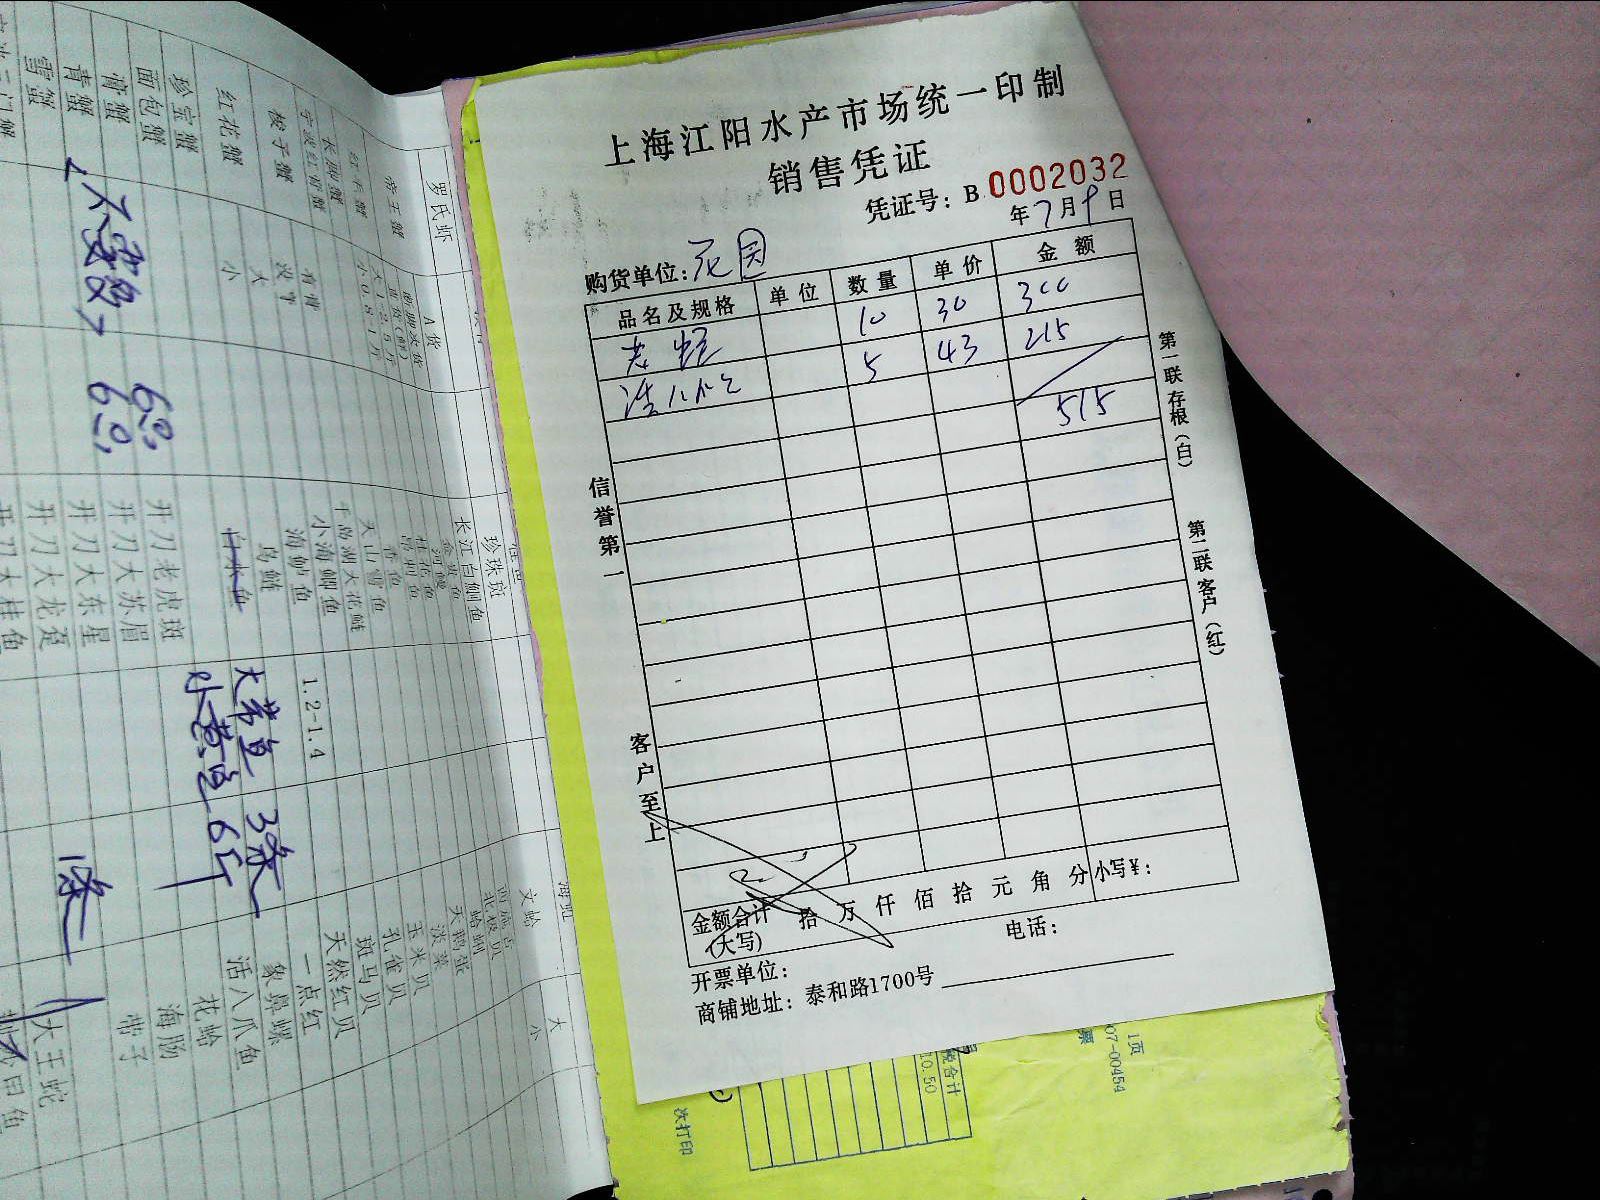 上海江阳水产市场统一印制
销售凭证
凭证号：B 0002032
年7月9日
购货单位：花园
品名及规格 单位 数量 单价 金额
老蛏 10 30 300
活八爪 5 43 215
515
信誉第一
客户至上
第一联存根（白）
第二联客户（红）
金额合计（大写） 拾 万 仟 佰 拾 元 角 分 小写¥：
开票单位： 电话：
商铺地址：泰和路1700号
罗氏虾
帝王蟹
红毛蟹
长脚蟹
宁波红膏蟹
梭子蟹
红花蟹
珍宝蟹
面包蟹
膏蟹
青蟹
雪蟹
A货
有膏
大
小
珍珠斑
长江白鮰鱼
金黄鱼
河鳗
桂花鱼
香鱼
天山雪鱼
千岛湖大花鲢
小海鲫鱼
海鲈鱼
乌鲢
白水鱼
1.2-1.4
开刀老虎斑
开刀大苏眉
开刀大东星
开刀大龙趸
开刀大桂鱼
3条
6斤
1条
海虹
文蛤
西施贝
北极贝
蛤蜊
天鹅蛋
淡菜
玉米贝
孔雀贝
斑马贝
天然红贝
一点红
象鼻螺
活八爪鱼
花蛤
海肠
带子
大王蛇
大
小
1页
07-00454
票
税合计
10.50
次打印